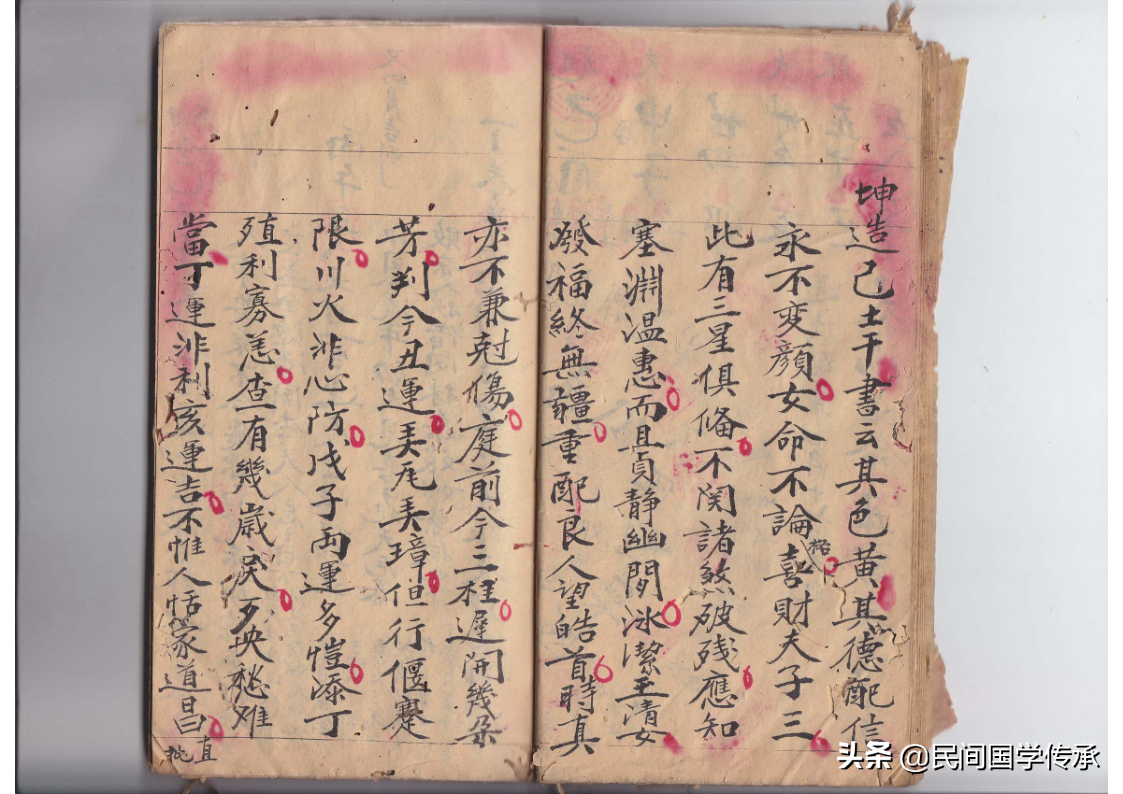 坤造己土干書云其色黄其德配信
永不变顔女命不論格喜財夫子三
此有三星俱俻不関諸煞破残應知
塞淵温惠而且貞静幽閒氷潔玉清女
發福終無疆重配良人望皓首時真
亦不兼尅傷庭前今三桂遲開幾朵
芳判今丑運弄瓦弄璋但行偃蹇
限川火非心防戊子両運多
丁
殖利寡恙查有幾歲戻
难
當丁運非利亥運吉不惟人恬家道昌
直
头条 @民间国学传承